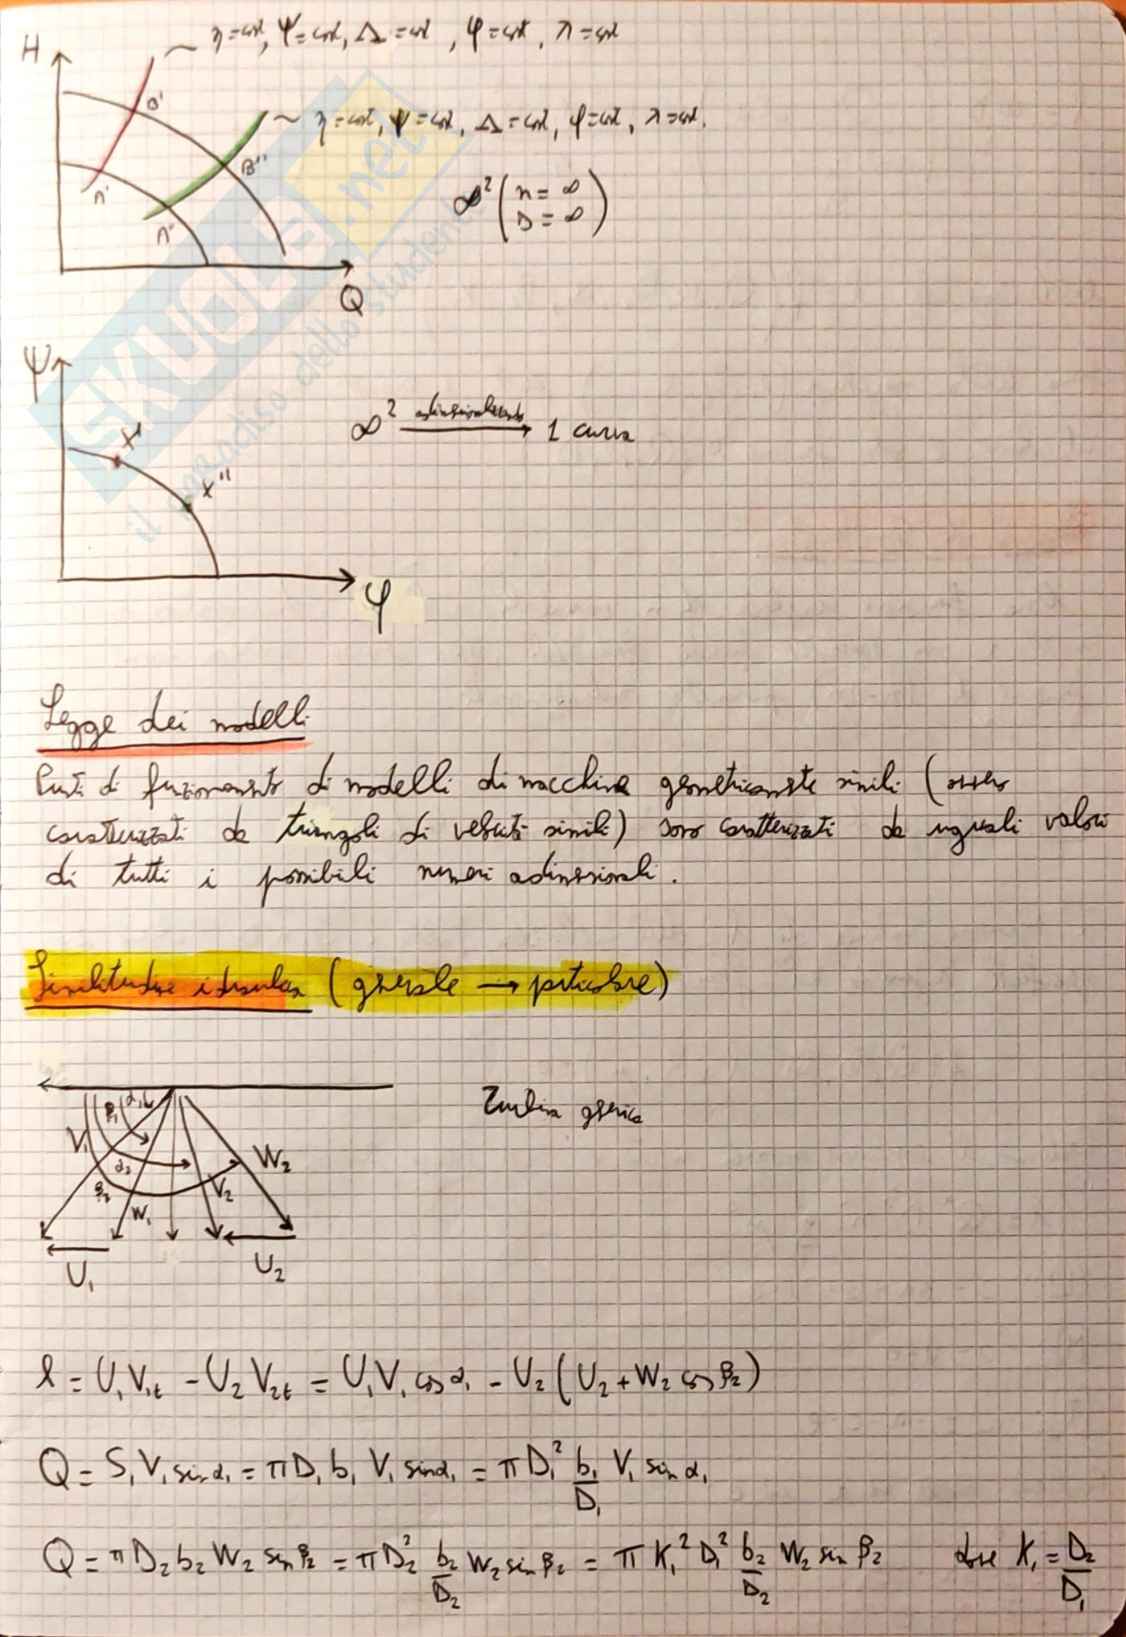 H
η=cost, Ψ=cost, Δ=cost, φ=cost, λ=cost
B'
η=cost, Ψ=cost, Δ=cost, φ=cost, λ=cost.
B''
A'
A''
∞² (n = ∞
D = ∞)
Q
SKUOLA.net
il paradiso dello studente
Ψ
X'
X''
∞² adimensionalizzando → 1 curva
φ
Legge dei modelli
Punti di funzionamento di modelli di macchina geometricamente simili (ovvero
caratterizzati da triangoli di velocità simili) sono caratterizzati da uguali valori
di tutti i possibili numeri adimensionali.
Similitudine idraulica (generale → particolare)
Turbina generica
β₁ α₁
V₁ α₂ W₂
β₂ V₂
W₁
U₁ U₂
l = U₁V₁t - U₂V₂t = U₁V₁cosα₁ - U₂(U₂+W₂cosβ₂)
Q = S₁V₁sinα₁ = πD₁b₁V₁sinα₁ = πD₁² b₁/D₁ V₁ sinα₁
Q = πD₂b₂W₂sinβ₂ = πD₂² b₂/D₂ W₂sinβ₂ = πK₁²D₁² b₂/D₂ W₂ sinβ₂ dove K₁ = D₂/D₁